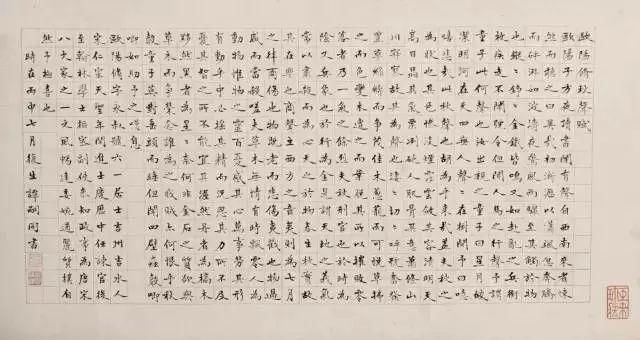 歐陽脩秋聲賦
歐陽子方夜讀書聞有聲自西南來者悚
然而聽之曰異哉初淅瀝以蕭颯忽奔騰
而砰湃如波濤夜驚風雨驟至其觸於物
也鏦鏦錚錚金鐵皆鳴又如赴敵之兵銜
枚疾走不聞號令但聞人馬之行聲予謂
童子此何聲也汝出視之童子曰星月皎
潔明河在天四無人聲聲在樹間予曰噫
嘻悲哉此秋聲也胡為乎來哉蓋夫秋之
為狀也其色慘淡煙霏雲斂其容清明天
高日晶其氣慄冽砭人肌骨其意蕭條山
川寂寥故其為聲也淒淒切切呼號奮發
豐草綠縟而爭茂佳木蔥蘢而可悅草拂
之而色變木遭之而葉脫其所以摧敗零
落者乃一氣之餘烈夫秋刑官也於時為
陰又兵象也於行為金是謂天地之義氣
常以肅殺而為心天之於物春生秋實故
其在樂也商聲主西方之音夷則為七月
之律商傷也物既老而悲傷夷戮也物過
盛而當殺嗟夫草木無情有時飄零人為
動物惟物之靈百憂感其心萬事勞其形
有動乎中必搖其精而況思其力之所不及
憂其智之所不能宜其渥然丹者為槁木
黟然黑者為星星奈何非金石之質欲與
草木而爭榮念誰為之戕賊亦何恨乎秋
聲童子莫對垂頭而睡但聞四壁蟲聲唧
唧如助予之嘆息
歐陽脩字永叔號六一居士吉州吉水人
宋仁宗天聖年間進士慶曆中任諫官後
至翰林學士樞密副使參知政事為唐宋
八大家之一文風暢達委婉遒麗質樸自
然予極喜也
時在丙申七月復生譚嗣同書